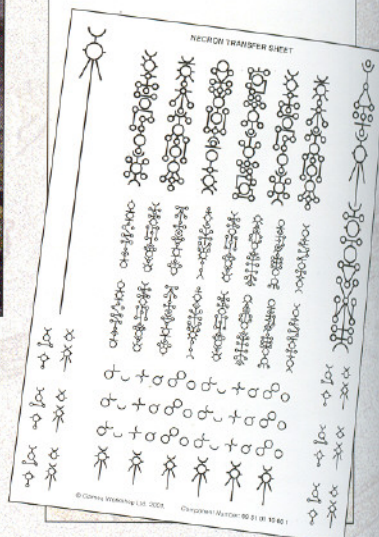 NECRON TRANSFER SHEET
© Games Workshop Ltd. 2003.
Component Number